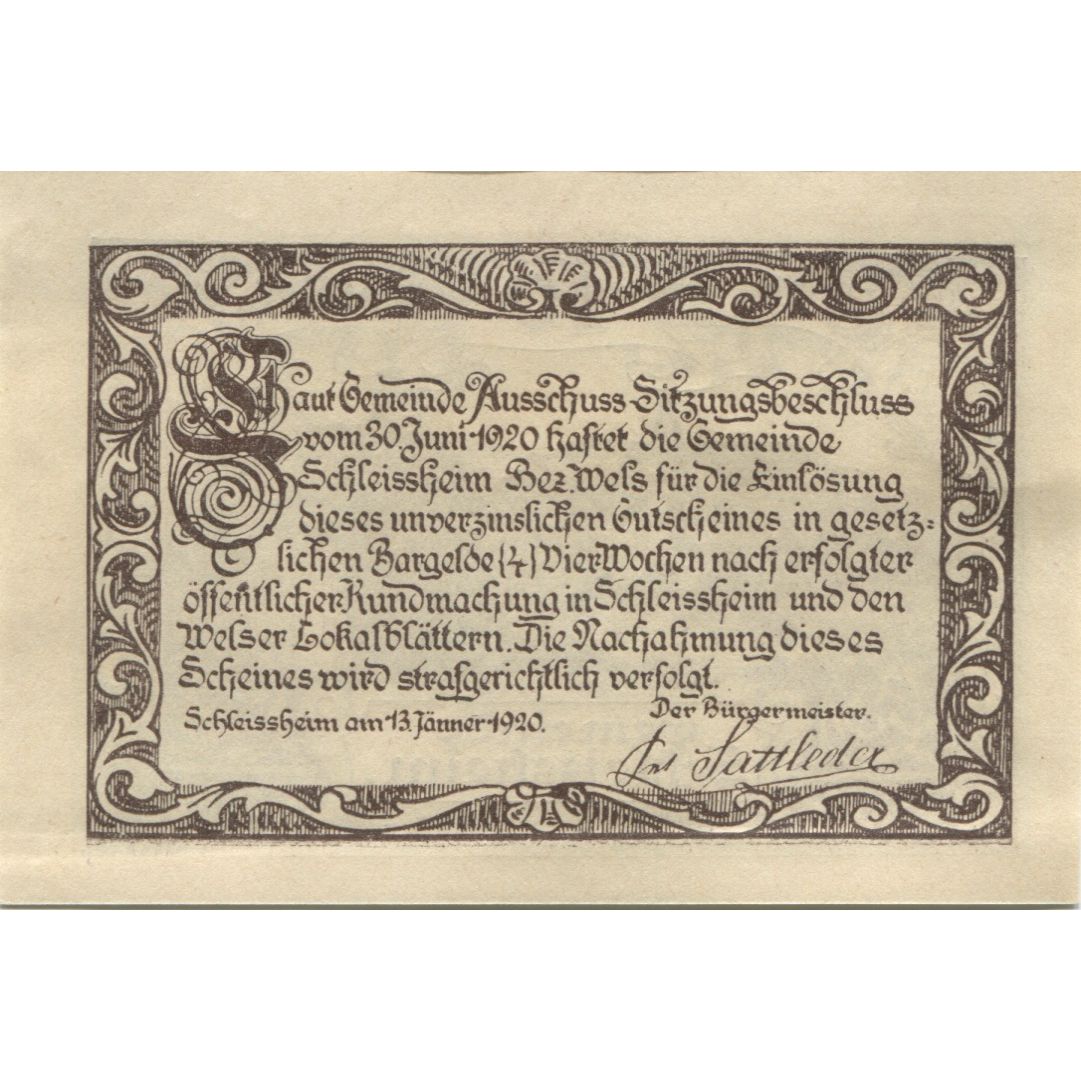 Laut Gemeinde Ausschuss-Sitzungsbeschluss
vom 30. Juni 1920 haftet die Gemeinde
Schleissheim Bez. Wels für die Einlösung
dieses unverzinslichen Gutscheines in gesetz=
lichen Bargelde (4) Vier Wochen nach erfolgter
öffentlicher Kundmachung in Schleissheim und den
Welser Lokalblättern. Die Nachahmung dieses
Scheines wird strafgerichtlich verfolgt.
Schleissheim am 13. Jänner 1920.
Der Bürgermeister.
Sattleder